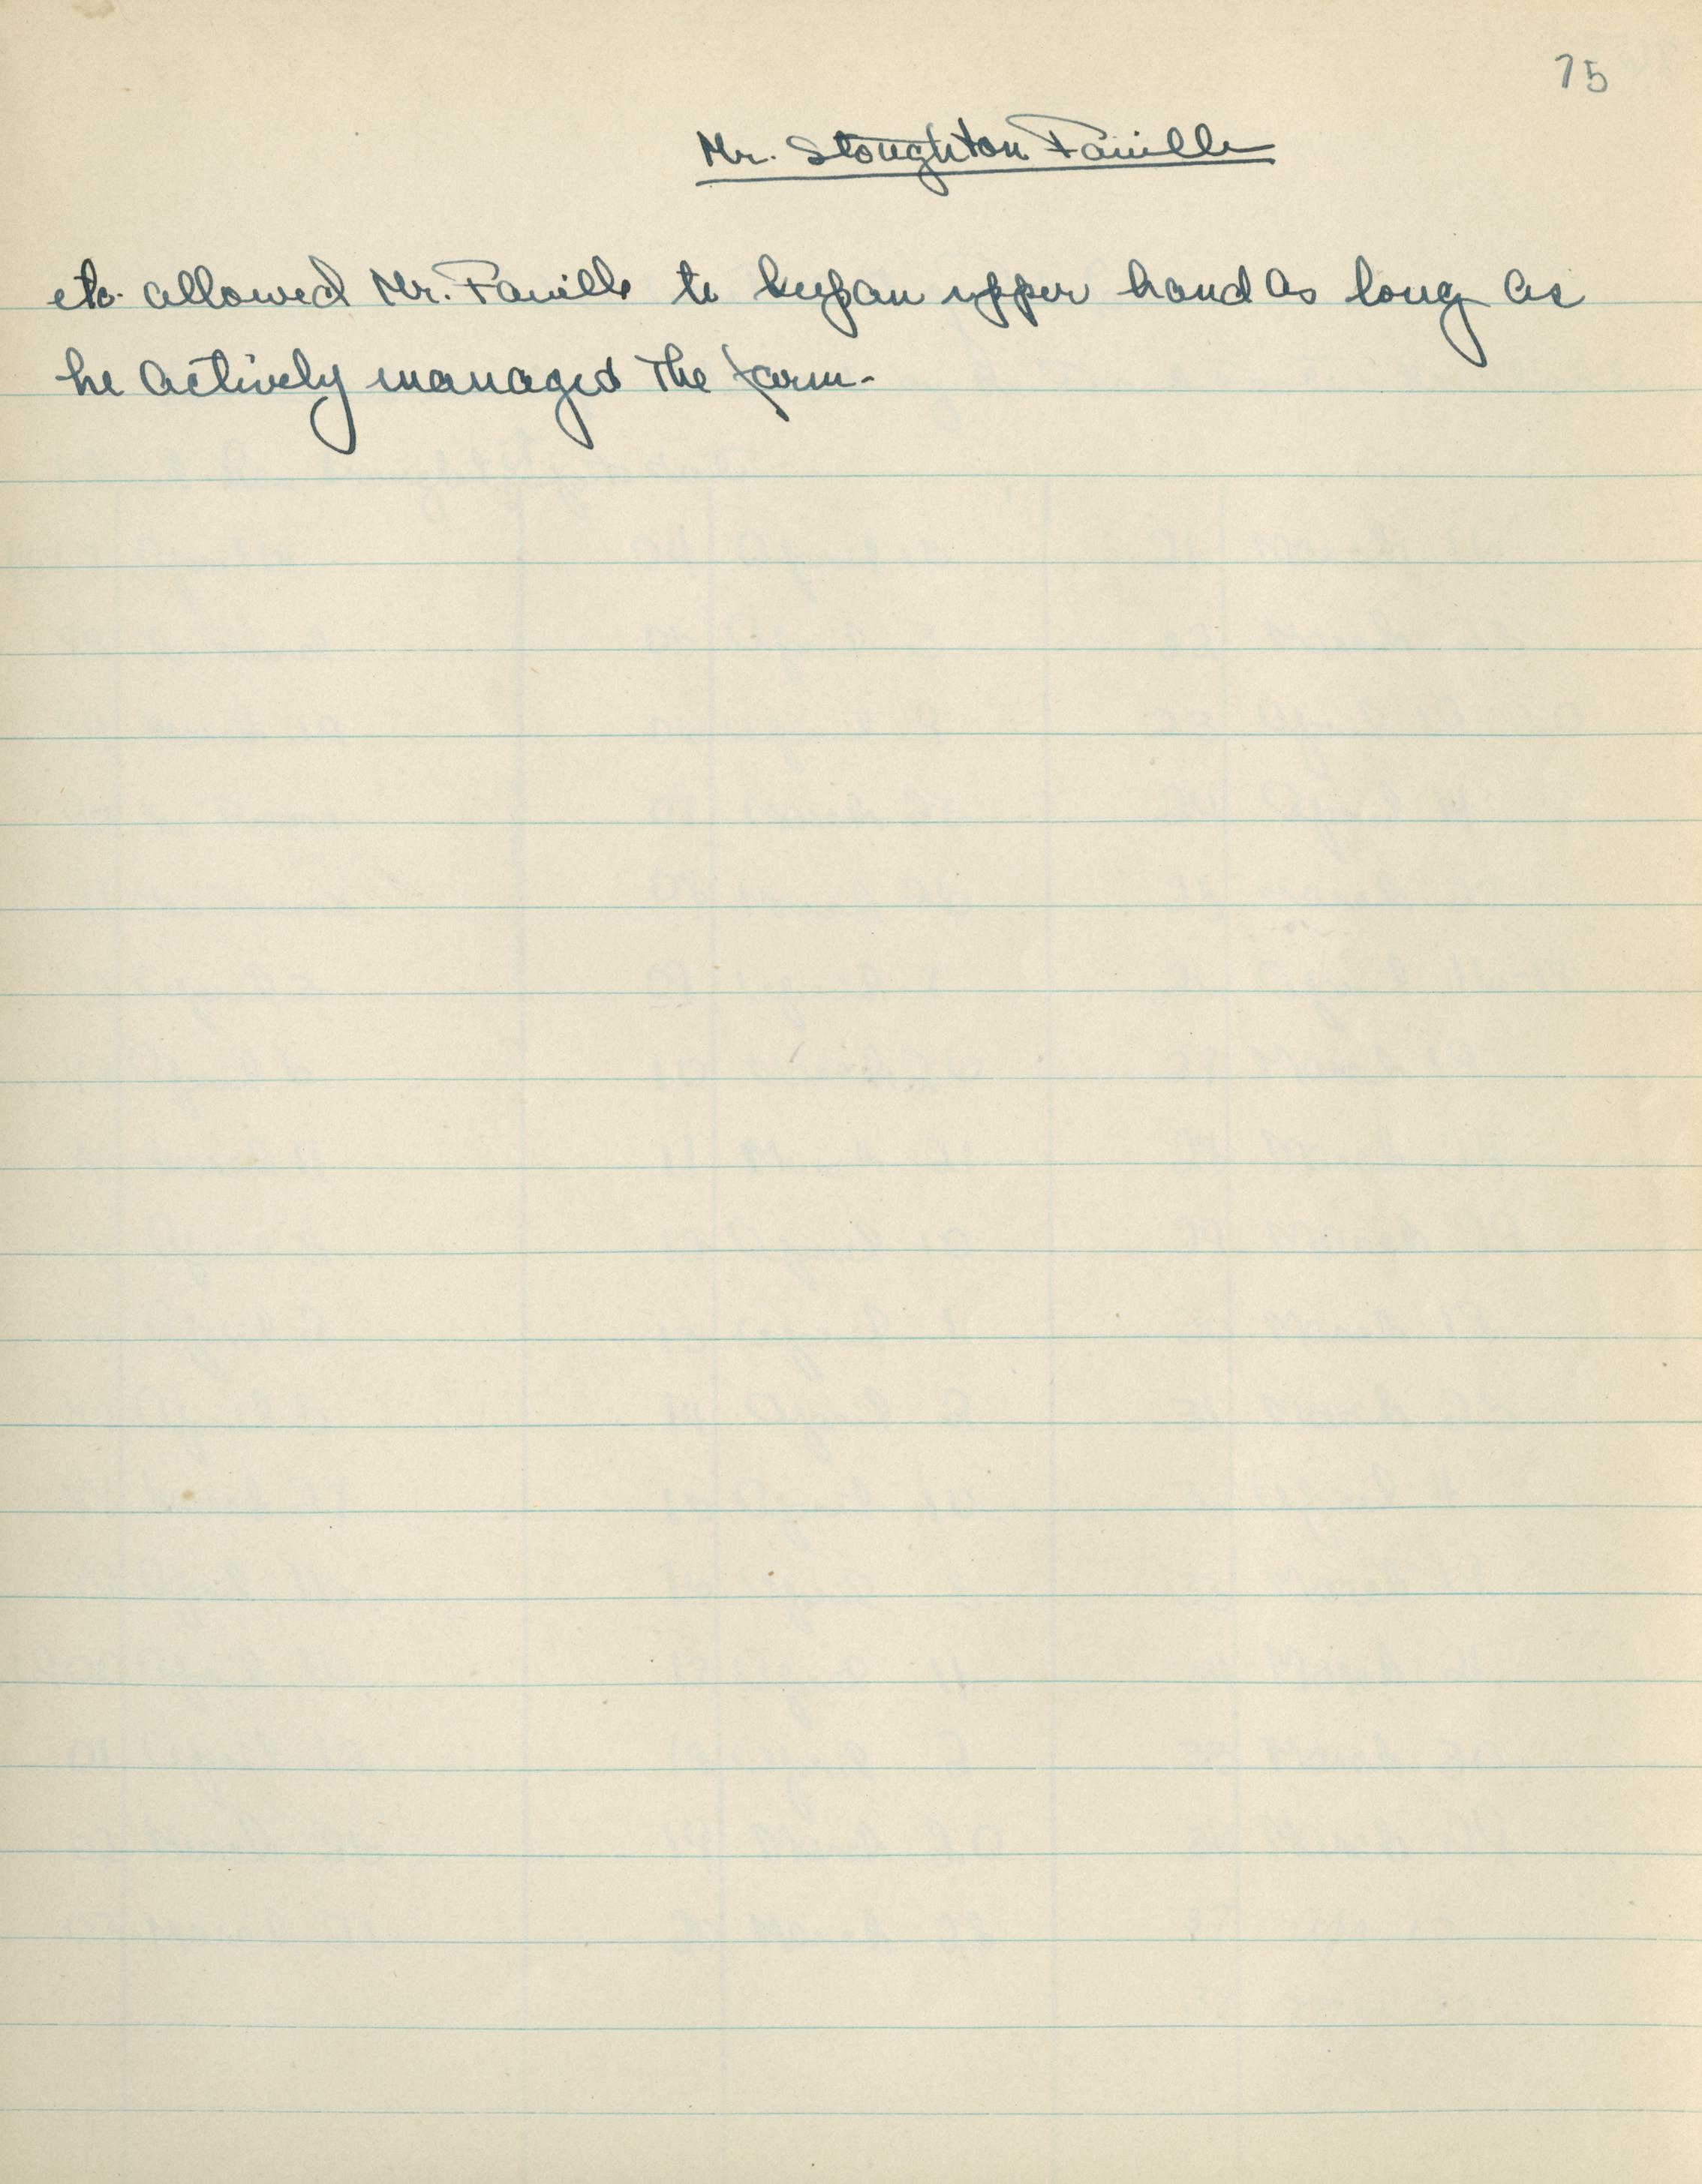 75
Mr. Stoughton Faville
etc. allowed Mr. Faville to keep an upper hand as long as
he actively managed the farm.